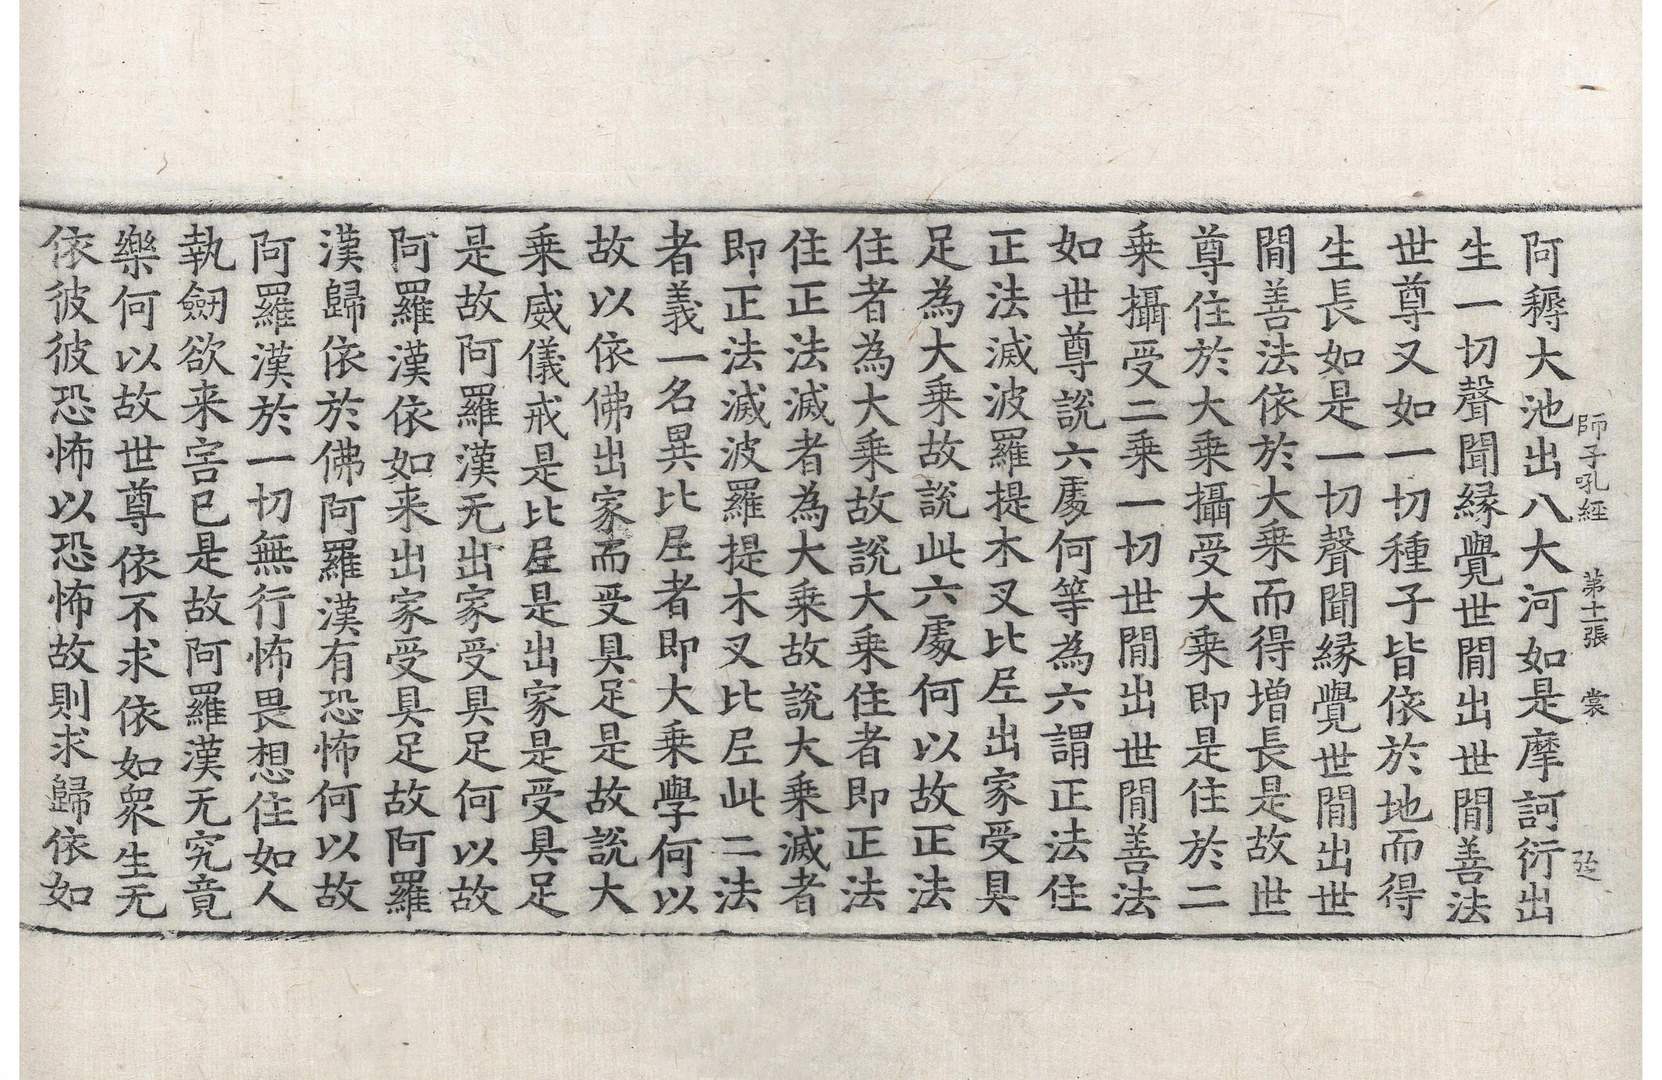 師子吼経 第十一張 裳
阿耨大池出八大河如是摩訶衍出
生一切聲聞縁覺世閒出世閒善法
世尊又如一切種子皆依於地而得
生長如是一切聲聞縁覺世閒出世
閒善法依於大乗而得增長是故世
尊住於大乗攝受大乗即是住於二
乗攝受二乗一切世閒出世閒善法
如世尊説六䖏何等為六謂正法住
正法滅波羅提木叉比丘出家受具
足為大乗故説此六䖏何以故正法
住者為大乗故説大乗住者即正法
住正法滅者為大乗故説大乗滅者
即正法滅波羅提木叉比丘此二法
者義一名異比丘者即大乗學何以
故以依佛出家而受具足是故説大
乗威儀戒是比丘是出家是受具足
是故阿羅漢无出家受具足何以故
阿羅漢依如来出家受具足故阿羅
漢歸依於佛阿羅漢有恐怖何以故
阿羅漢於一切無行怖畏想住如人
執劒欲来害已是故阿羅漢无究竟
樂何以故世尊依不求依如衆生无
依彼彼恐怖以恐怖故則求歸依如